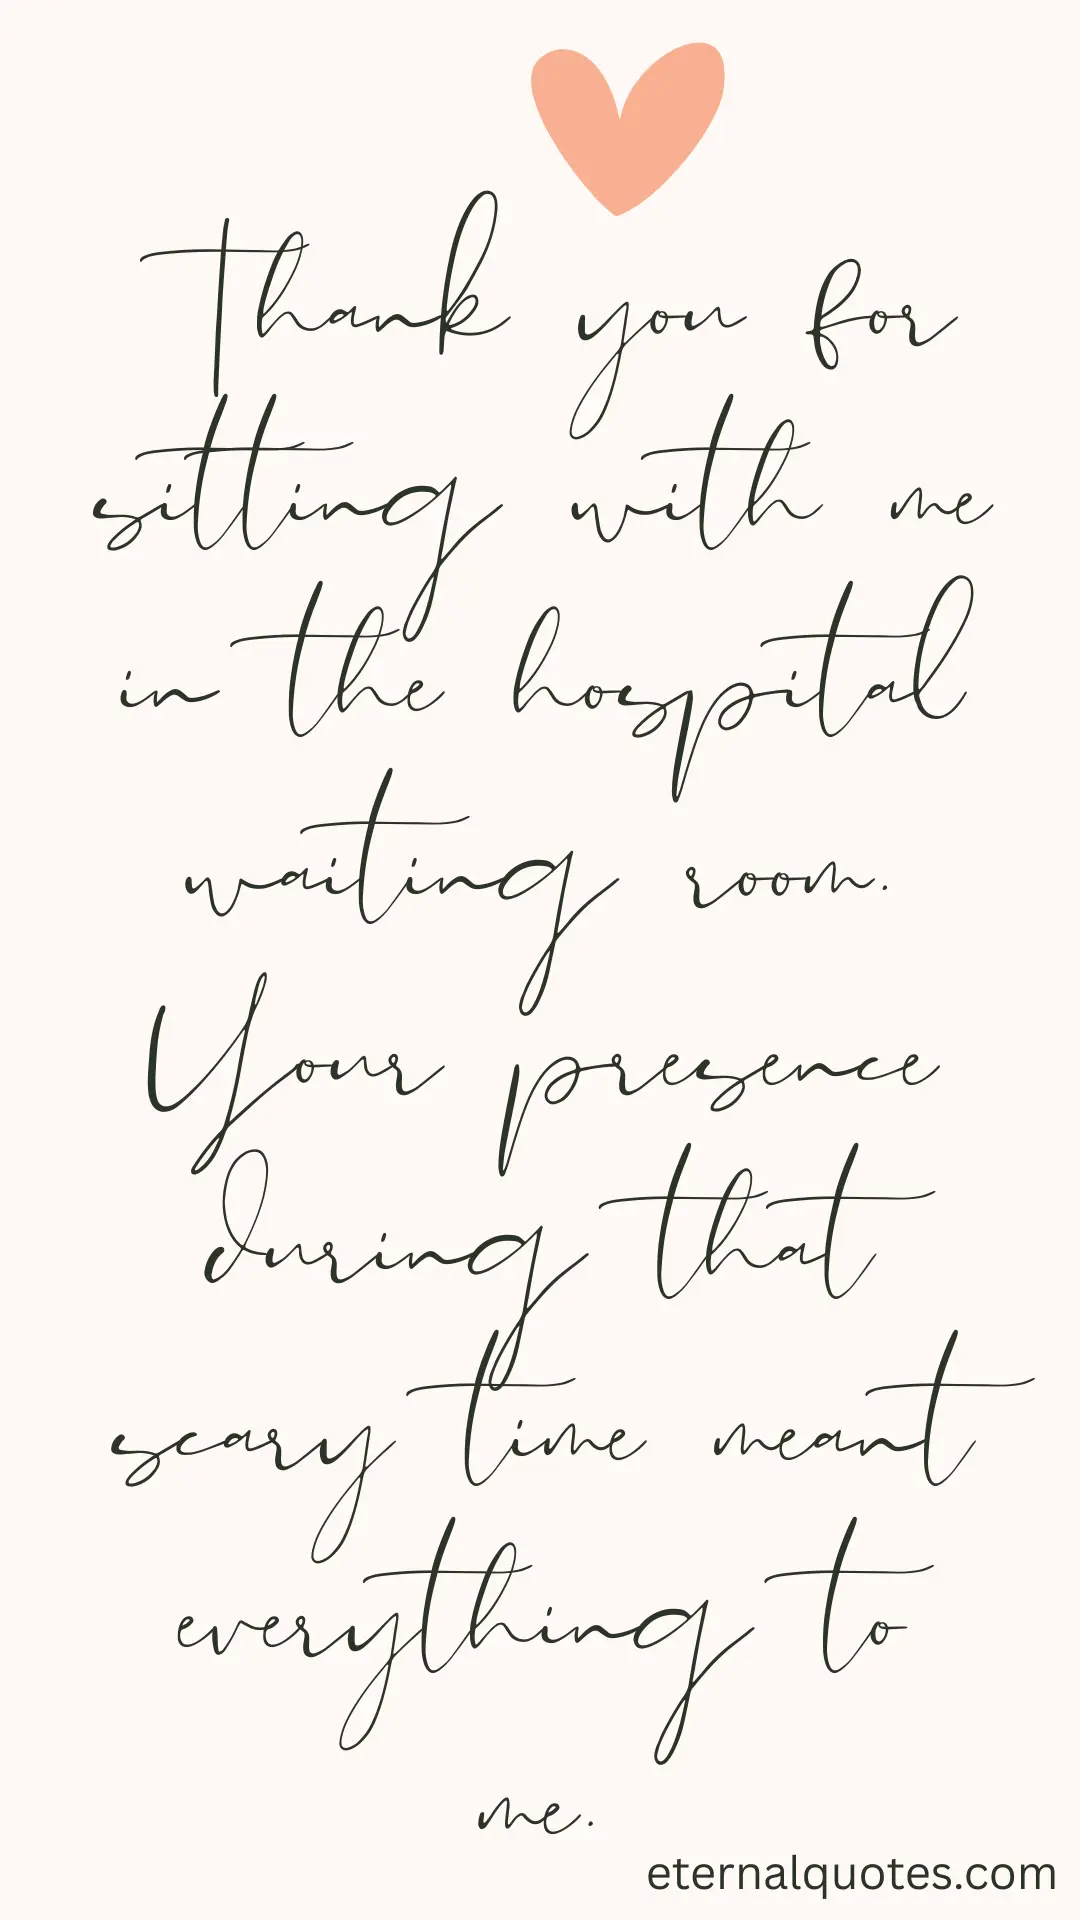 Thank you for
sitting with me
in the hospital
waiting room.
Your presence
during that
scary time meant
everything to
me.
eternalquotes.com